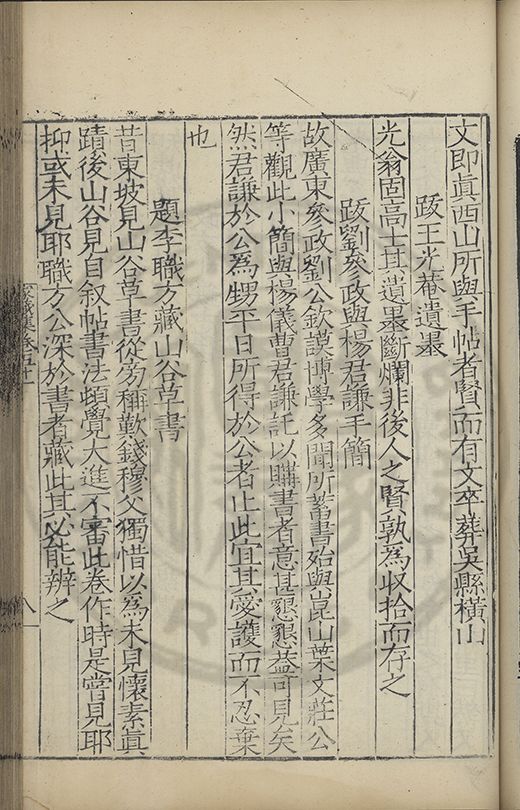 文即真西山所與手帖者賢而有文卒葬吳縣橫山
跋王光菴遺墨
光翁固高士其遺墨斷爛非後人之賢孰爲収拾而存之
跋劉參政與楊君謙手簡
故廣東參政劉公欽謨博學多聞所蓄書殆與崑山葉文莊公
等觀此小簡與楊儀曹君謙託以購書者意甚懇懇葢可見矣
然君謙於公爲甥平日所得於公者止此宜其愛護而不忍棄
也
題李職方藏山谷草書
昔東坡見山谷草書從旁稱歎錢穆父獨惜以爲未見懷素真
蹟後山谷見自叙帖書法頓覺大進不審此卷作時是嘗見耶
抑或未見耶職方公深於書者藏此其必能辨之
八